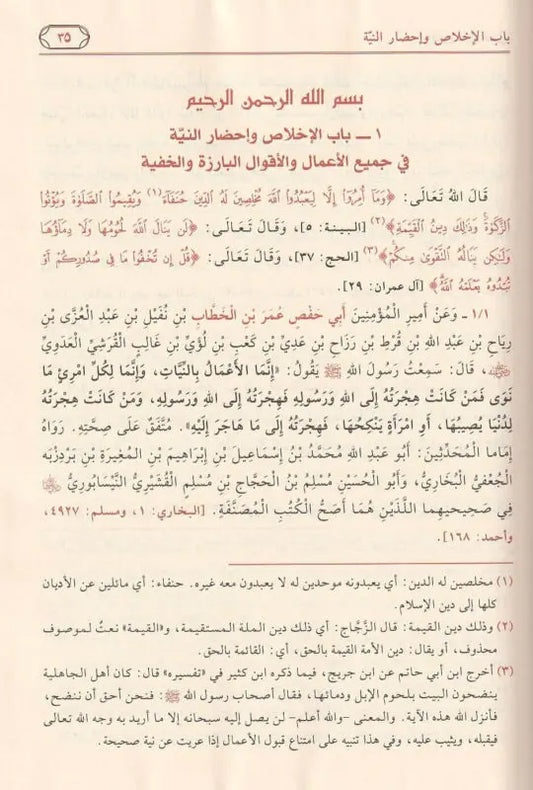 باب الإخلاص وإحضار النيّة
٣٥
بسم الله الرحمن الرحيم
١ ـ باب الإخلاص وإحضار النيّة
في جميع الأعمال والأقوال البارزة والخفية
قَالَ اللهُ تَعَالَى: ﴿وَمَآ أُمِرُوٓا۟ إِلَّا لِيَعْبُدُوا۟ ٱللَّهَ مُخْلِصِينَ لَهُ ٱلدِّينَ حُنَفَآءَ(١) وَيُقِيمُوا۟ ٱلصَّلَوٰةَ وَيُؤْتُوا۟
ٱلزَّكَوٰةَ ۚ وَذَٰلِكَ دِينُ ٱلْقَيِّمَةِ﴾(٢) [البينة: ٥]، وَقَالَ تَعَالَى: ﴿لَن يَنَالَ ٱللَّهَ لُحُومُهَا وَلَا دِمَآؤُهَا
وَلَٰكِن يَنَالُهُ ٱلتَّقْوَىٰ مِنكُمْ﴾(٣) [الحج: ٣٧]، وَقَالَ تَعَالَى: ﴿قُلْ إِن تُخْفُوا۟ مَا فِى صُدُورِكُمْ أَوْ
تُبْدُوهُ يَعْلَمْهُ ٱللَّهُ﴾ [آل عمران: ٢٩].
١/١ ـ وَعَنْ أَمِيرِ الْمُؤْمِنِينَ أَبِي حَفْصٍ عُمَرَ بْنِ الْخَطَّابِ بْنِ نُفَيْلِ بْنِ عَبْدِ الْعُزَّى بْنِ
رِيَاحِ بْنِ عَبْدِ اللهِ بْنِ قُرْطِ بْنِ رَزَاحِ بْنِ عَدِيِّ بْنِ كَعْبِ بْنِ لُؤَيِّ بْنِ غَالِبٍ الْقُرَشِيِّ الْعَدَوِيِّ
رضي الله عنه، قَالَ: سَمِعْتُ رَسُولَ اللهِ ﷺ يَقُولُ: «إِنَّمَا الأَعْمَالُ بِالنِّيَّاتِ، وَإِنَّمَا لِكُلِّ امْرِئٍ مَا
نَوَى فَمَنْ كَانَتْ هِجْرَتُهُ إِلَى اللهِ وَرَسُولِهِ فَهِجْرَتُهُ إِلَى اللهِ وَرَسُولِهِ، وَمَنْ كَانَتْ هِجْرَتُهُ
لِدُنْيَا يُصِيبُهَا، أَوِ امْرَأَةٍ يَنْكِحُهَا، فَهِجْرَتُهُ إِلَى مَا هَاجَرَ إِلَيْهِ». مُتَّفَقٌ عَلَى صِحَّتِهِ. رَوَاهُ
إِمَامَا الْمُحَدِّثِينَ: أَبُو عَبْدِ اللهِ مُحَمَّدُ بْنُ إِسْمَاعِيلَ بْنِ إِبْرَاهِيمَ بْنِ الْمُغِيرَةِ بْنِ بَرْدِزْبَه
الْجُعْفِيُّ الْبُخَارِيُّ، وَأَبُو الْحُسَيْنِ مُسْلِمُ بْنُ الْحَجَّاجِ بْنِ مُسْلِمٍ الْقُشَيْرِيُّ النَّيْسَابُورِيُّ
فِي صَحِيحيهِما اللَّذَيْنِ هُمَا أَصَحُّ الْكُتُبِ الْمُصَنَّفَةِ. [البخاري: ١، ومسلم: ٤٩٢٧،
وأحمد: ١٦٨].
(١) مخلصين له الدين: أي يعبدونه موحدين له لا يعبدون معه غيره. حنفاء: أي مائلين عن الأديان
كلها إلى دين الإسلام.
(٢) وذلك دين القيمة: قال الزَّجَّاج: أي ذلك دين الملة المستقيمة، و«القيمة» نعتٌ لموصوف
محذوف، أو يقال: دين الأمة القيمة بالحق، أي: القائمة بالحق.
(٣) أخرج ابن أبي حاتم عن ابن جريج، فيما ذكره ابن كثير في «تفسيره» قال: كان أهل الجاهلية
ينضحون البيت بلحوم الإبل ودمائها، فقال أصحاب رسول الله ﷺ: فنحن أحق أن ننضح،
فأنزل الله هذه الآية. والمعنى -والله أعلم- لن يصل إليه سبحانه إلا ما أريد به وجه الله تعالى
فيقبله، ويثيب عليه، وفي هذا تنبيه على امتناع قبول الأعمال إذا عريت عن نية صحيحة.